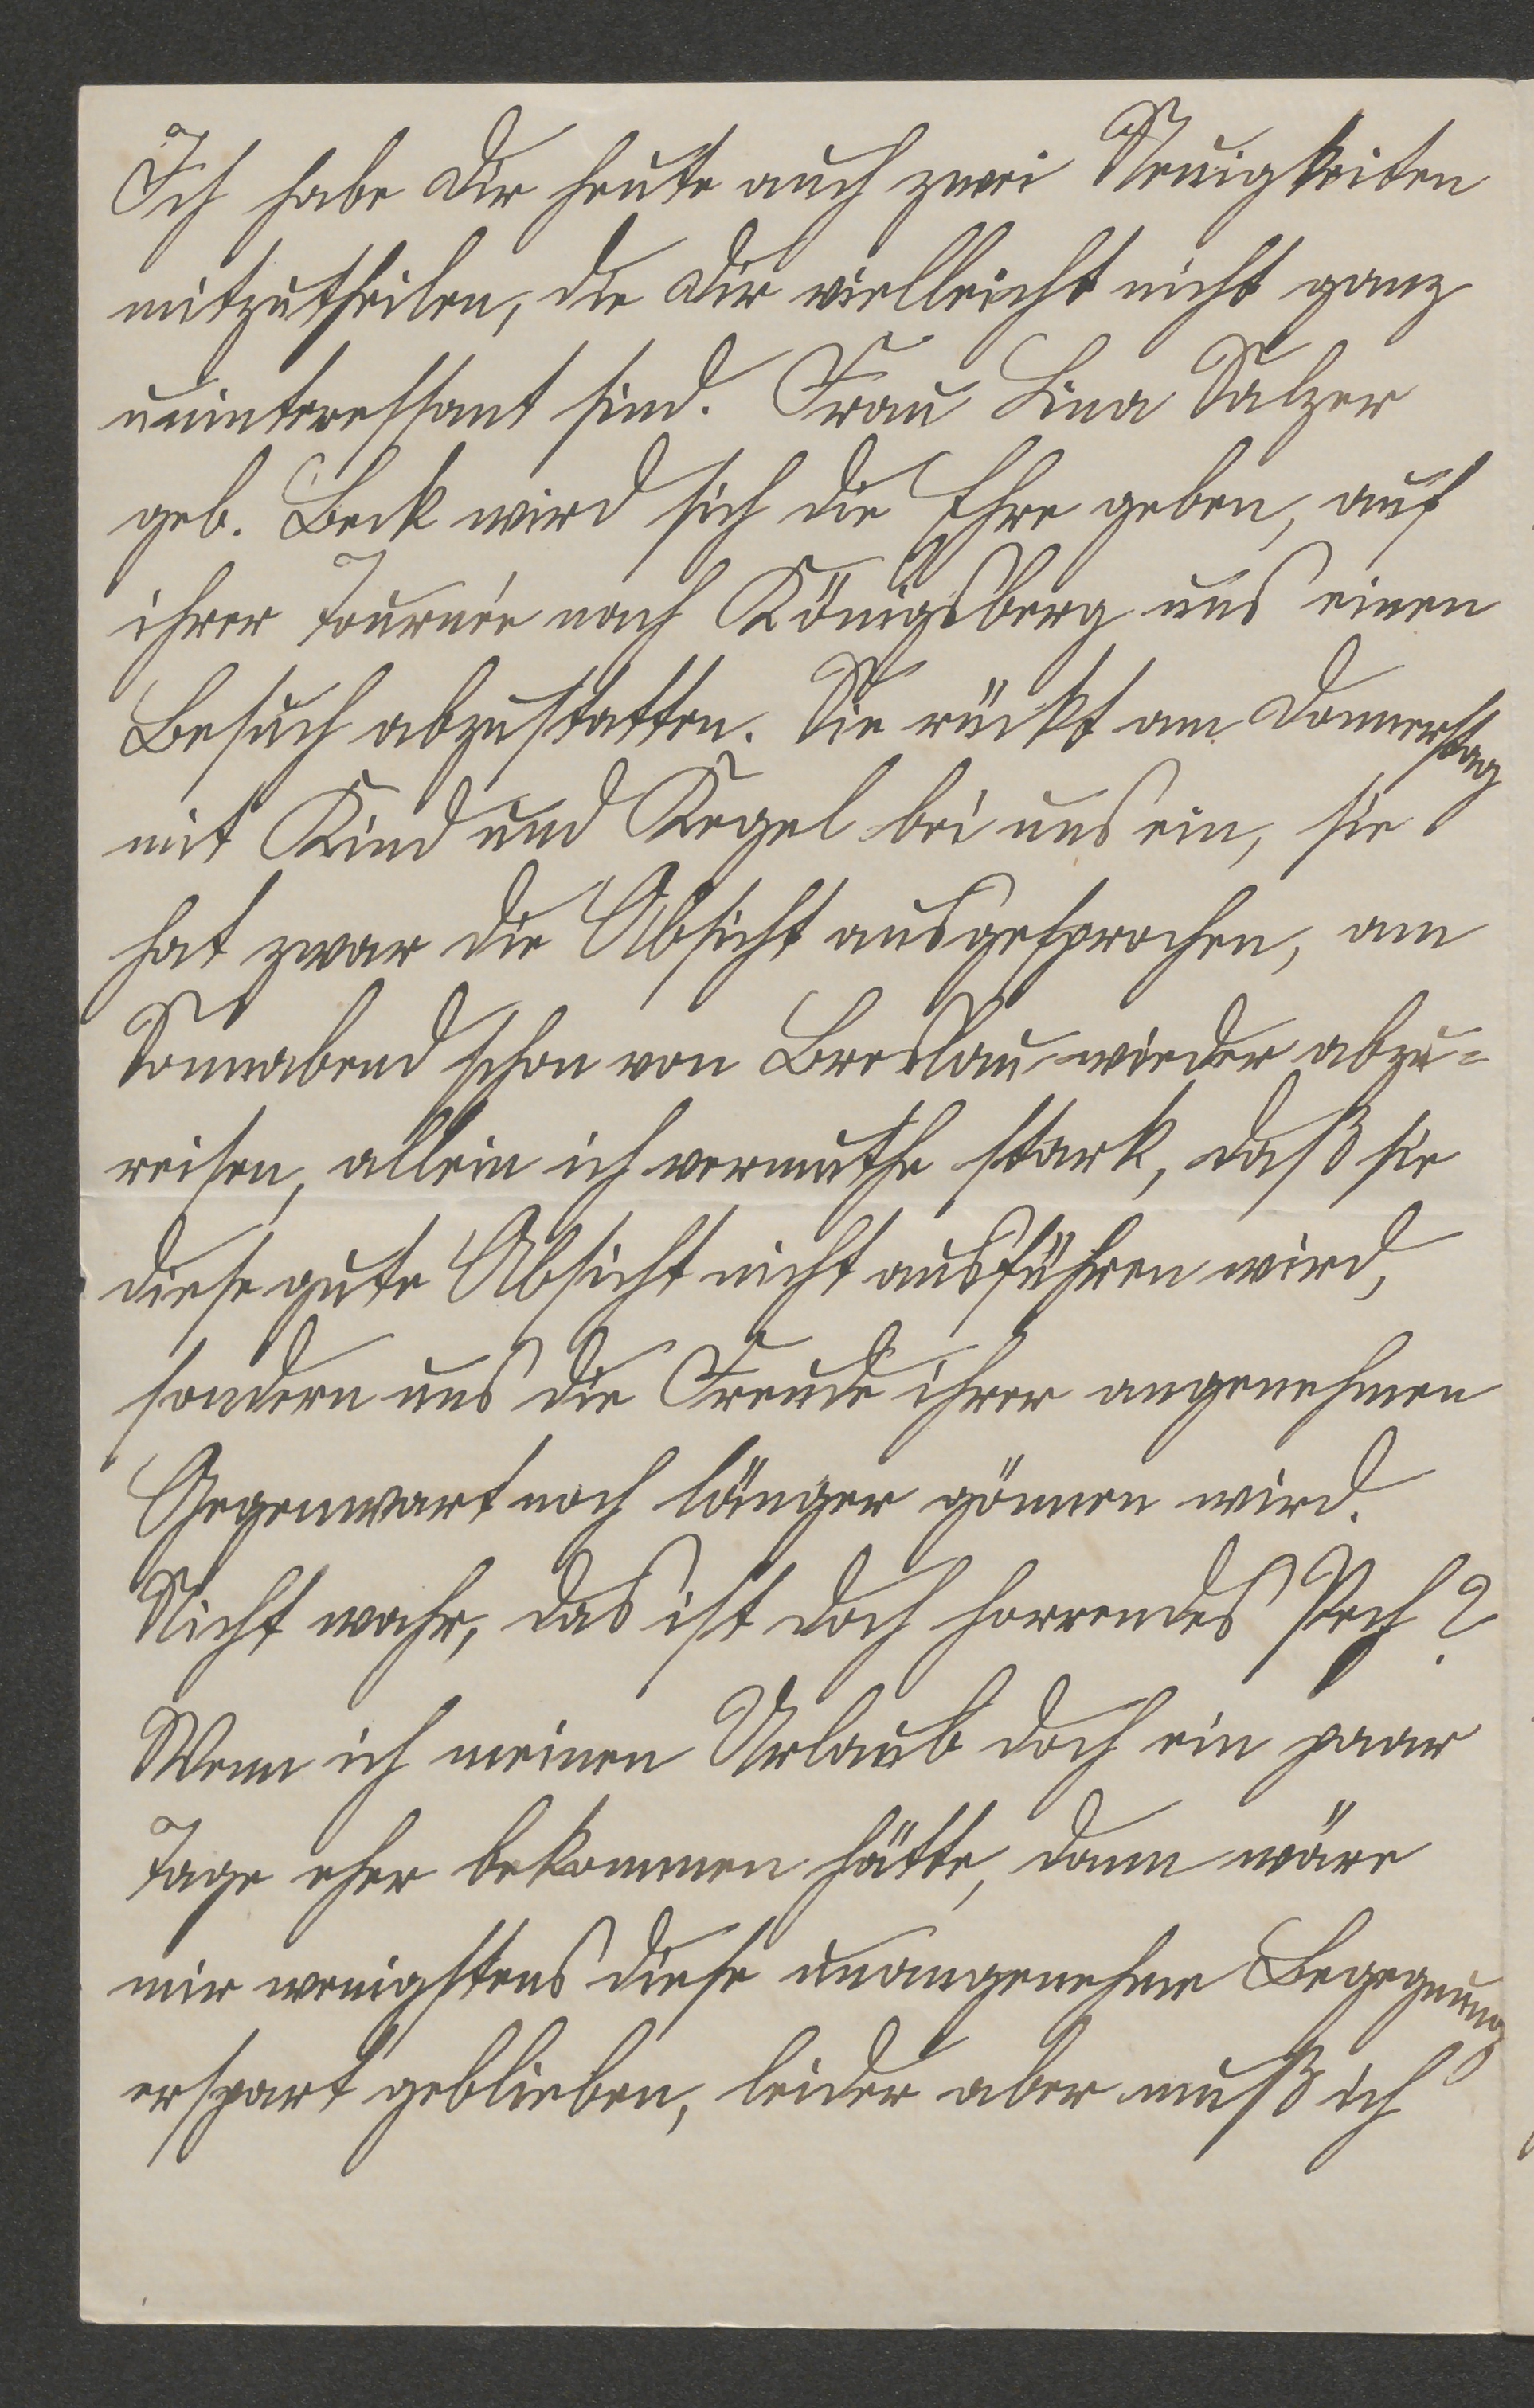 Ich habe Dir heute auch zwei Neuigkeiten
mitzutheilen, die Dir vielleicht nicht ganz
uninteressant sind. Frau Lina Salzer
geb. Beck wird sich die Ehre geben, auf
ihrer Tournée nach Königsberg uns einen
Besuch abzustatten. Sie rückt am Donnerstag
mit Kind und Kegel bei uns ein, sie
hat zwar die Absicht ausgesprochen, am
Sonnabend schon von Breslau wieder abzu=
reisen, allein ich vermuthe stark, daß sie
diese gute Absicht nicht ausführen wird,
sondern uns die Freude ihrer angenehmen
Gegenwart noch länger gönnen wird.
Nicht wahr, das ist doch horrendes Pech?
Wenn ich meinen Urlaub doch ein paar
Tage eher bekommen hätte, dann wäre
mir wenigstens diese unangenehme Begegnung
erspart geblieben, leider aber muß ich